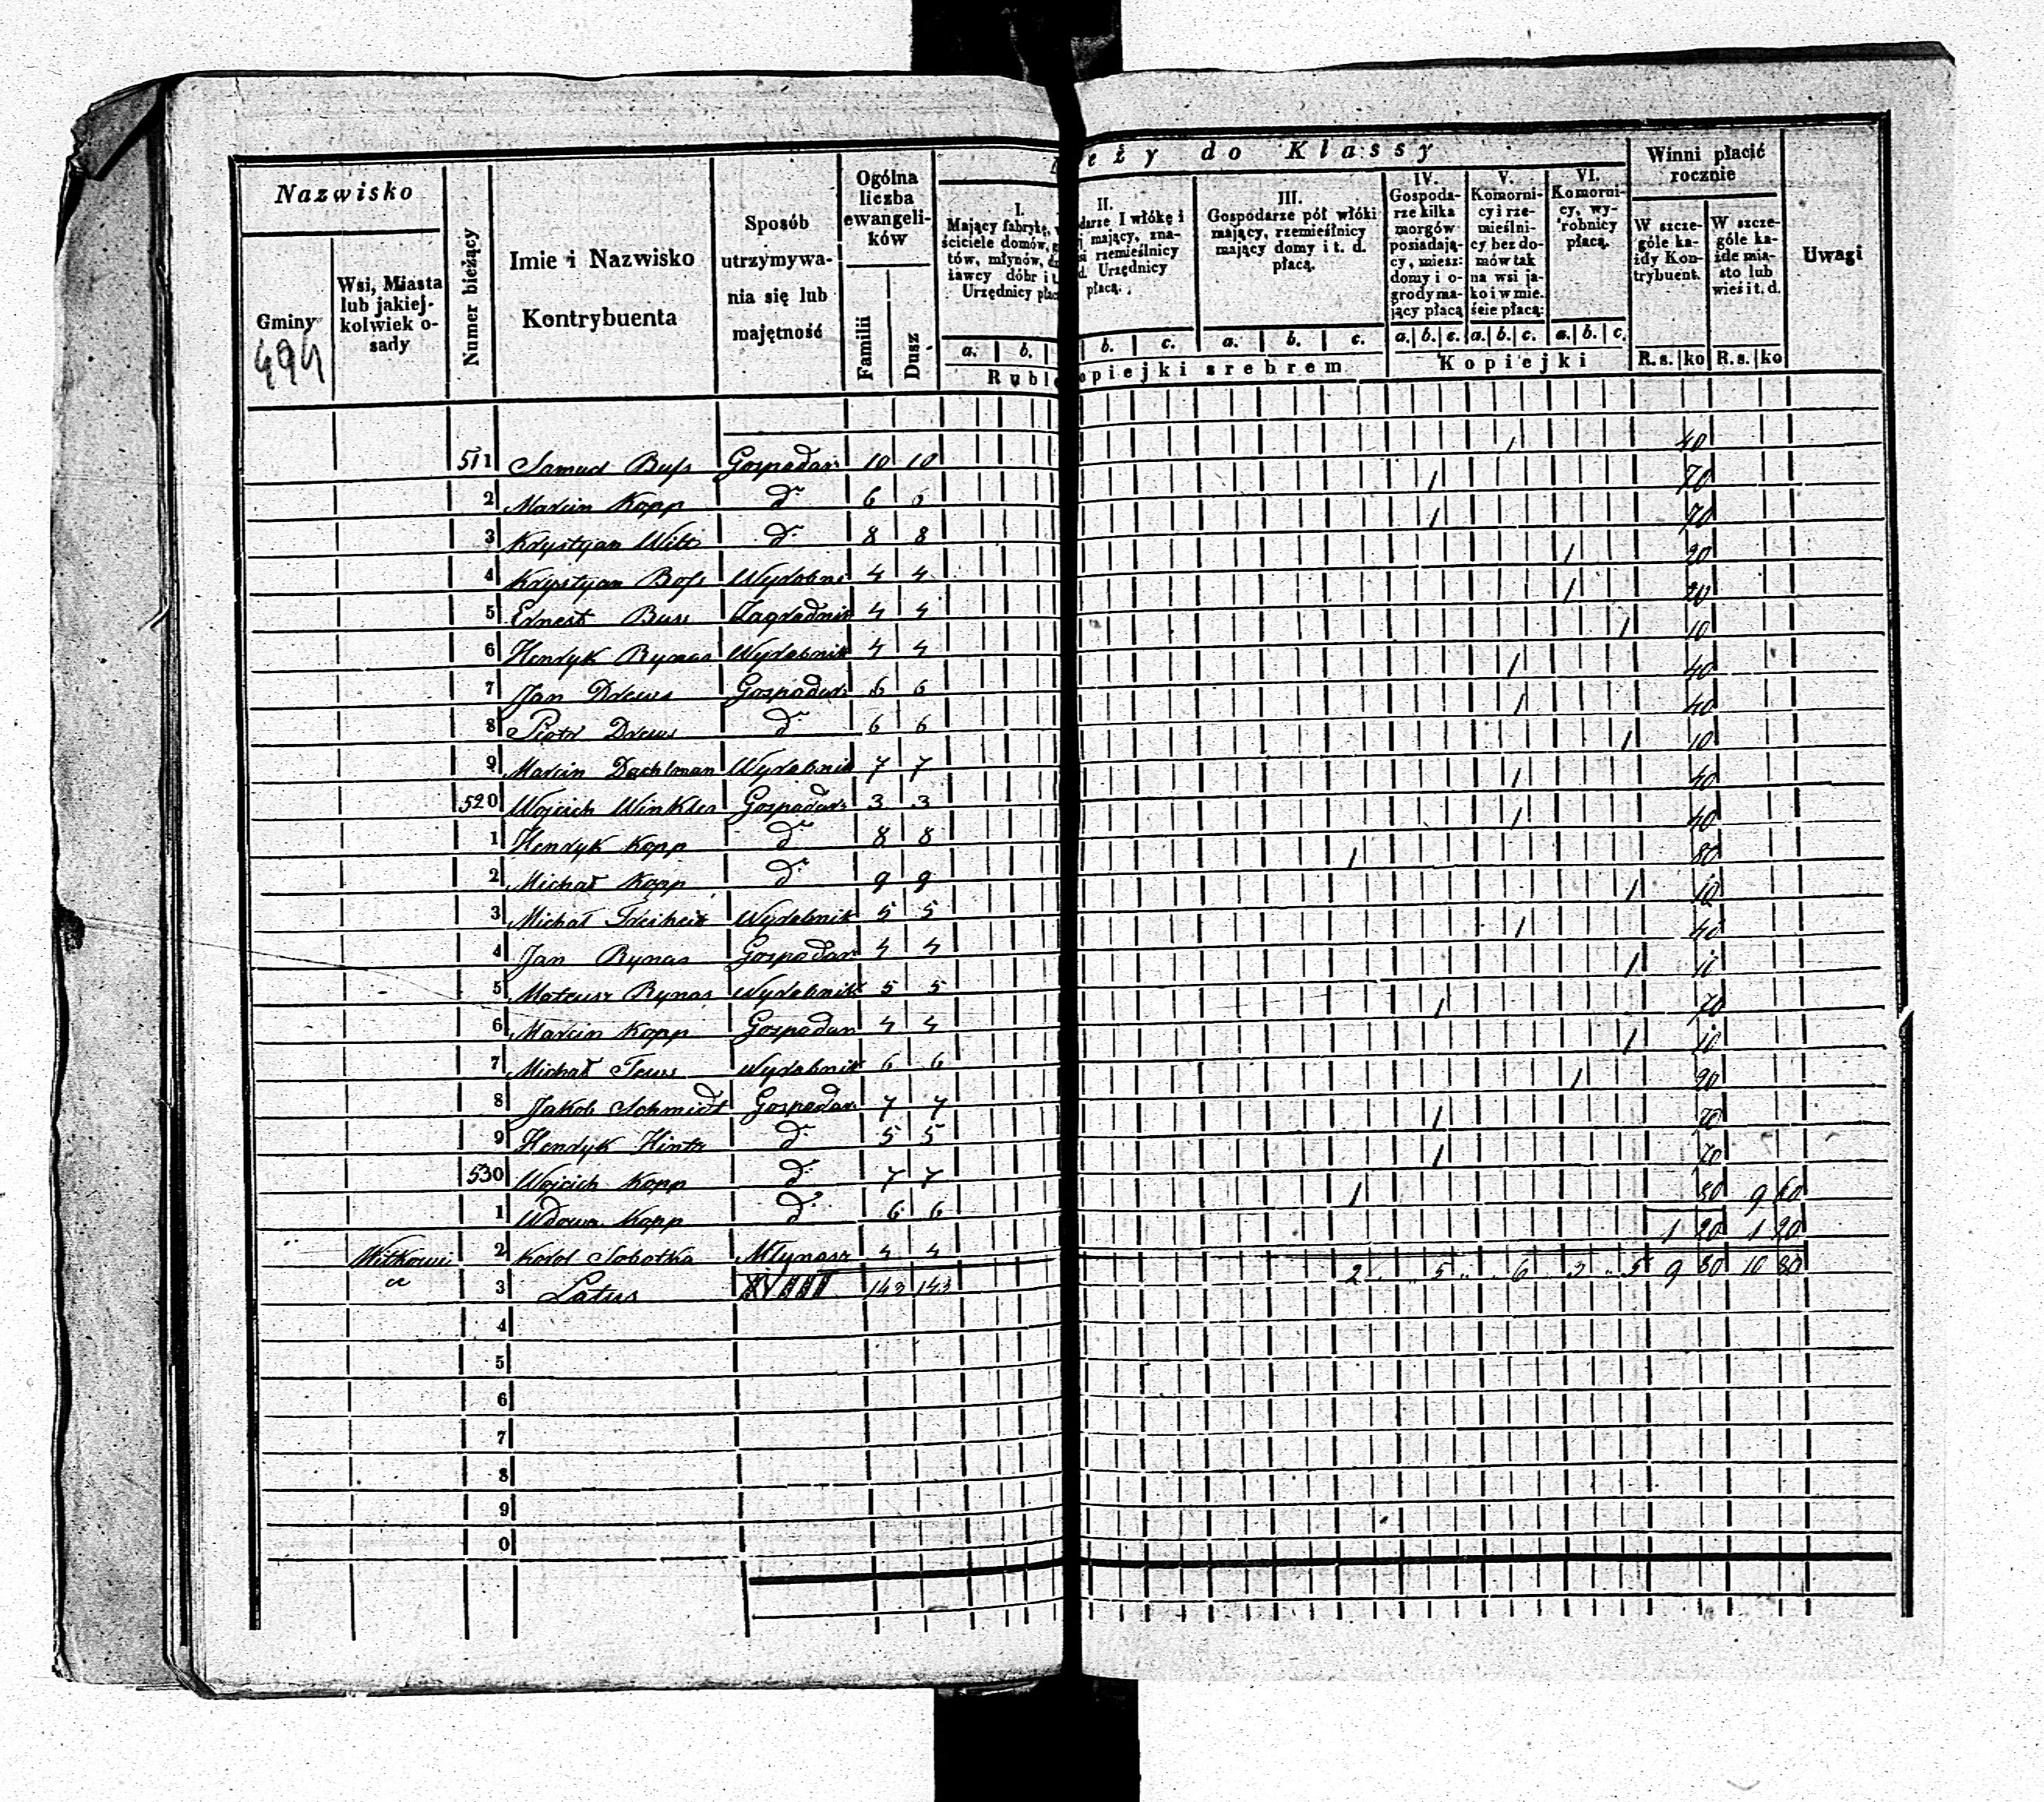 Nazwisko
Gminy
494
Wsi, Miasta
lub jakiej-
kolwiek o-
sady
Numer bieżący
Imie i Nazwisko
Kontrybuenta
Sposób
utrzymywa-
nia się lub
majętność
Ogólna
liczba
ewangeli-
ków
Familii
Dusz
eży do Klassy
I.
Mający fabrykę,
ściciele domów,
tów, młynów,
żawcy dóbr i
Urzędnicy płac
II.
darze I włókę i
mający, zna-
si rzemieślnicy
d. Urzędnicy
płacą.
III.
Gospodarze pół włóki
mający, rzemieślnicy
mający domy i t. d.
płacą.
IV.
Gospoda-
rze kilka
morgów
posiadają-
cy, miesz:
domy i o-
grody ma-
jący płacą
V.
Komorni-
cy i rze-
mieślni-
cy bez do-
mów tak
na wsi ja-
ko i w mie-
ście płacą:
VI.
Komorni-
cy, wy-
robnicy
płacą.
Winni płacić
rocznie
W szcze-
góle ka-
żdy Kon-
trybuent.
W szcze-
góle ka-
żde mia-
sto lub
wieś i t. d.
Uwagi
a. b. b. c. a. b. c. a. b. c. a. b. c. a. b. c.
Rubl opiejki srebrem Kopiejki R. s. ko R. s. ko
511 Samuel Buss Gospodarz 10 10 1 40
2 Marcin Kopp d° 6 6 1 70
3 Krystyan Witt d° 8 8 1 70
4 Krystyan Boss Wyrobni 4 4 1 20
5 Ernest Buss Zagrodnik 4 4 1 20
6 Henryk Rynas Wyrobnik 4 4 1 10
7 Jan Drews Gospodarz 6 6 1 40
8 Piotr Drews d° 6 6 1 40
9 Marcin Dachlman Wyrobnik 7 7 1 10
520 Wojciech Winkler Gospodarz 3 3 1 40
1 Henryk Kopp d° 8 8 1 40
2 Michał Kopp d° 9 9 1 80
3 Michał Wyrobnik 5 5 1 10
4 Jan Rynas Gospodarz 4 4 1 40
5 Mateusz Rynas Wyrobnik 5 5 1 10
6 Marcin Kopp Gospodarz 4 4 1 70
7 Michał Tews Wyrobnik 6 6 1 10
8 Jakob Schmidt Gospodarz 7 7 1 20
9 Henryk Hintz d° 5 5 1 70
530 Wojciech Kopp d° 7 7 1 70
1 Wdowa Kopp d° 6 6 1 80 9 60
Witkowi
ce
2 Karol Sobotka Młynarz 4 4 1 20 1 20
3 Latus 143 143 2 5 6 3 5 9 80 10 80
4
5
6
7
8
9
0